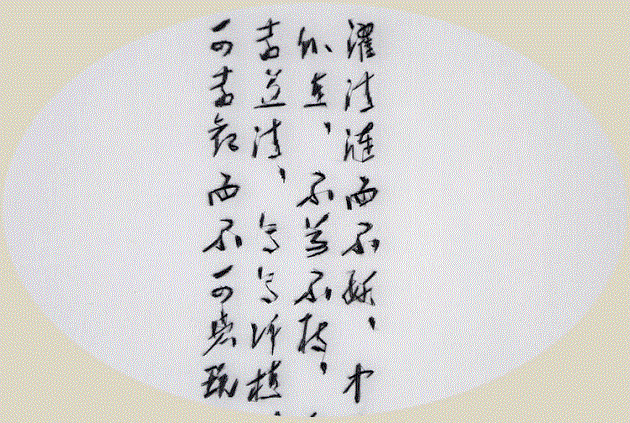 濯清涟而不妖,中
外直,不蔓不枝,
远益清,亭亭净植,
可远观而不可亵玩